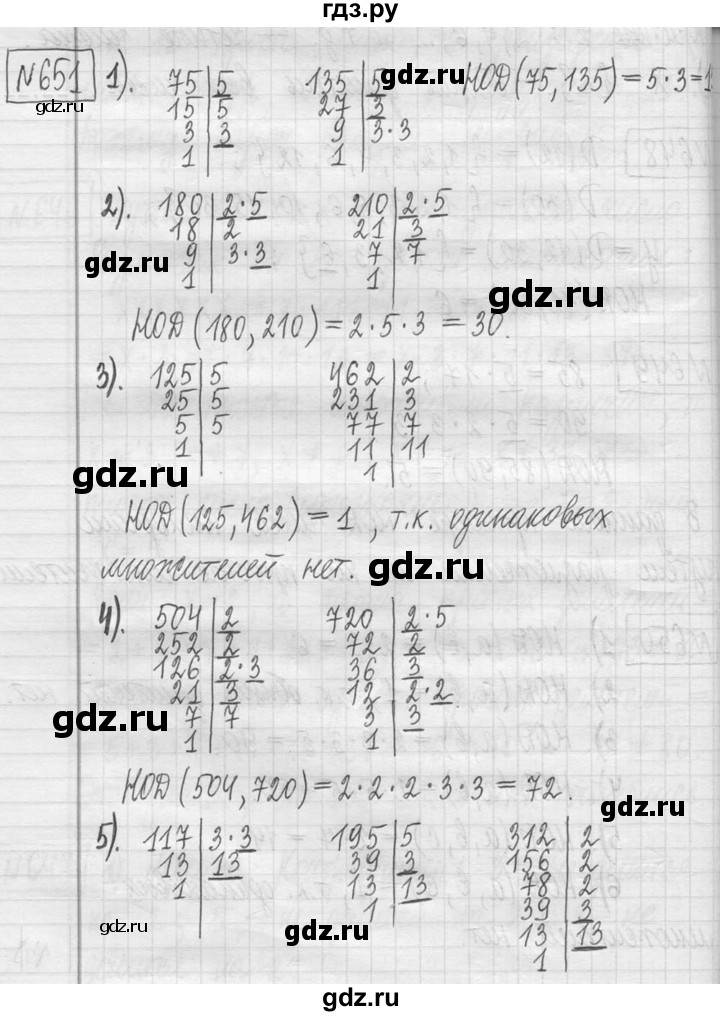 гдз.ру
№651 1). 75 | 5 135 | 5 НОД(75,135)=5·3=1
15 | 5 27 | 3
3 | 3 9 | 3·3
1 1
gdz.ru gdz.ru
2). 180 | 2·5 210 | 2·5
18 | 2 21 | 3
9 | 3·3 7 | 7
1 1
gdz.ru gdz.ru
НОД(180,210)=2·5·3=30.
3). 125 | 5 462 | 2
25 | 5 231 | 3
5 | 5 77 | 7
1 11 | 11
1
gdz.ru gdz.ru
НОД(125,462)=1, т.к. одинаковых
множителей нет.
gdz.ru
4). 504 | 2 720 | 2·5
252 | 2 72 | 2
126 | 2·3 36 | 3
21 | 3 12 | 2·2
7 | 7 3 | 3
1 1
gdz.ru gdz.ru
НОД(504,720)=2·2·2·3·3=72.
gdz.ru
5). 117 | 3·3 195 | 5 312 | 2
13 | 13 39 | 3 156 | 2
1 13 | 13 78 | 2
1 39 | 3
13 | 13
1
gdz.ru gdz.ru
gdz.ru